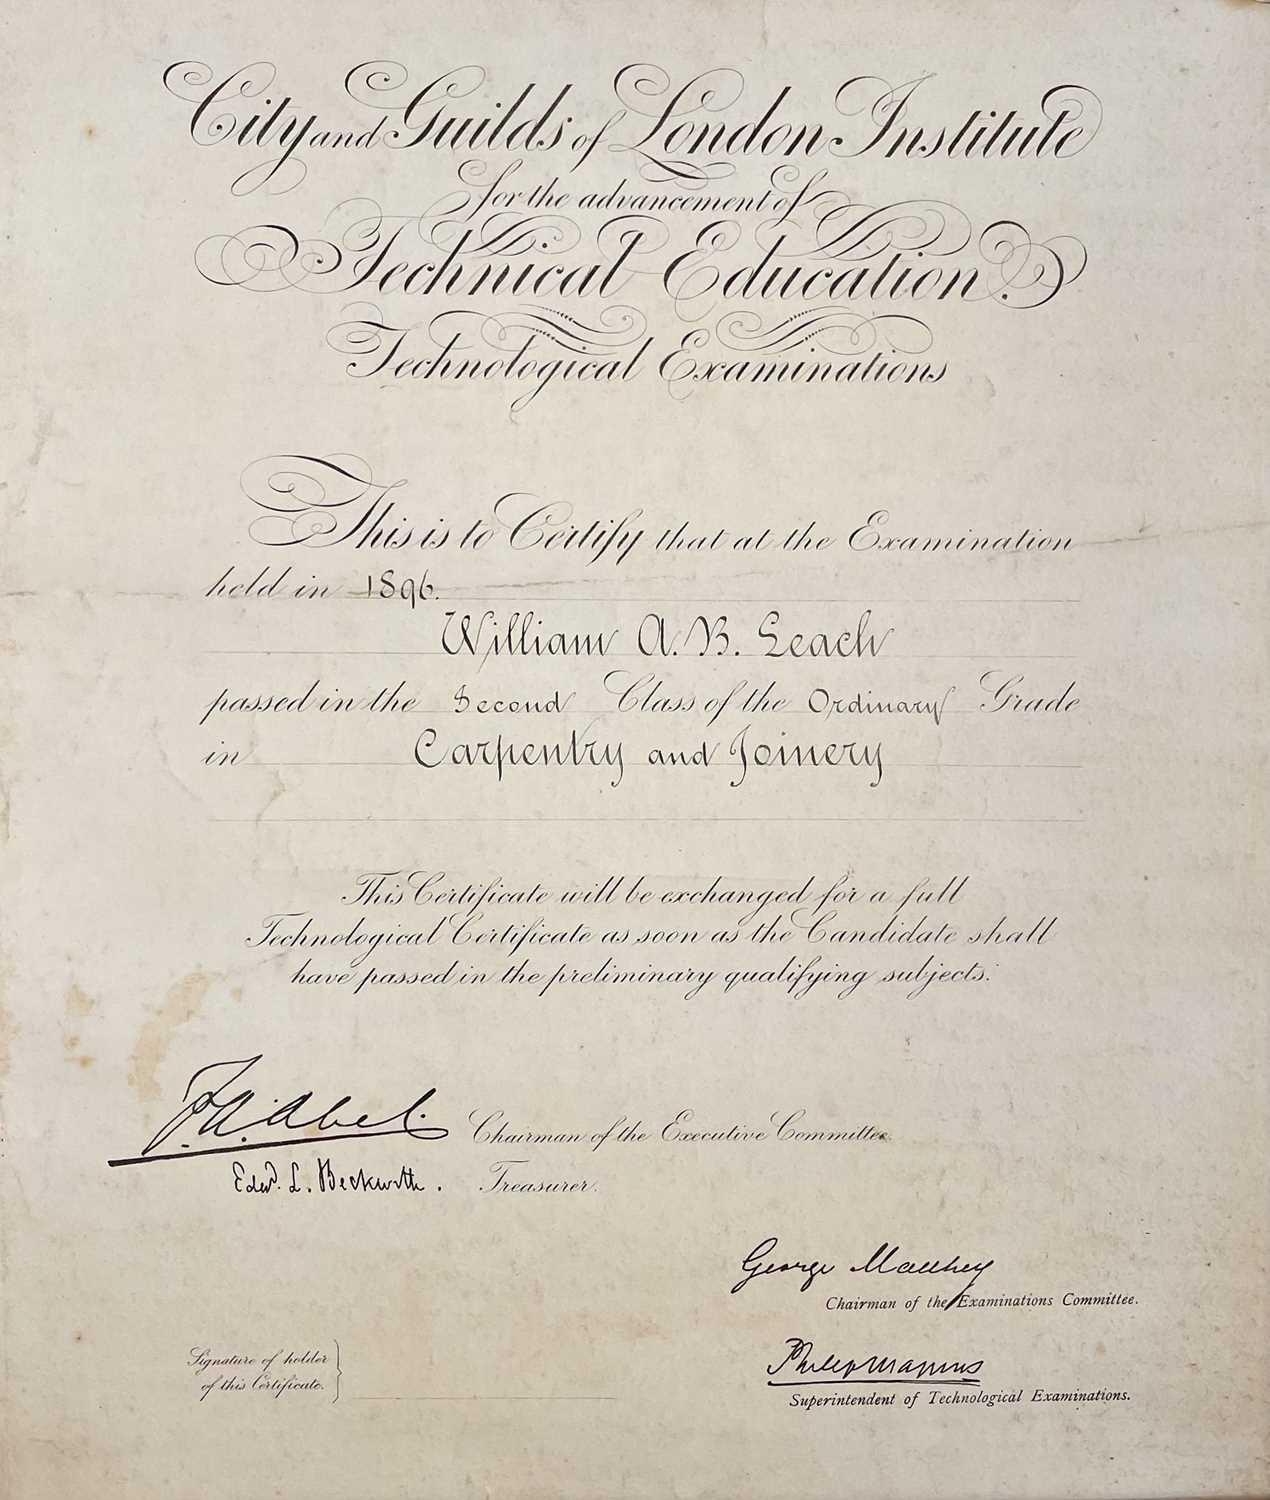 City and Guilds of London Institute
for the advancement of
Technical Education.
Technological Examinations
This is to Certify that at the Examination
held in 1896.
William A. B. Leach
passed in the Second Class of the Ordinary Grade
in Carpentry and Joinery
This Certificate will be exchanged for a full
Technological Certificate as soon as the Candidate shall
have passed in the preliminary qualifying subjects.
F. A. Abel. Chairman of the Executive Committee.
Edwd. L. Beckwith. Treasurer.
George Matthey
Chairman of the Examinations Committee.
Philip Magnus
Superintendent of Technological Examinations.
Signature of holder
of this Certificate.